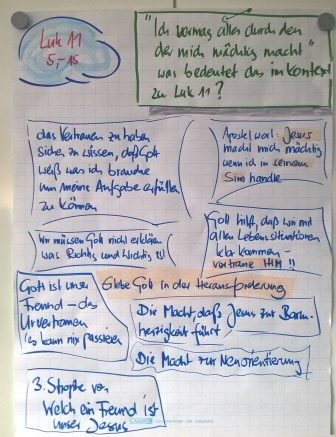 Luk 11
5,-15
"Ich vermag alles durch den
der mich mächtig macht"
was bedeutet das im Kontext
zu Luk 11?
das Vertrauen zu haben
sicher zu wissen, daß Gott
weiß was ich brauche
um meine Aufgabe erfüllen
zu können
Apostelwort: Jesus
macht mich mächtig
wenn ich in seinem
Sinn handle
Wir müssen Gott nicht erklären
was Richtig und Wichtig ist
Gott hilft, daß wir mit
allen Lebenssituationen
klar kommen -
vertraue IHM !!
Gott ist unser
Freund – das
Urvertrauen
es kann nix passieren
Gott in der Herausforderung
Die Macht, daß Jesus zur Barm-
herzigkeit führt
Die Macht zur Neuorientierung
3. Strophe von
Welch ein Freund ist
unser Jesus